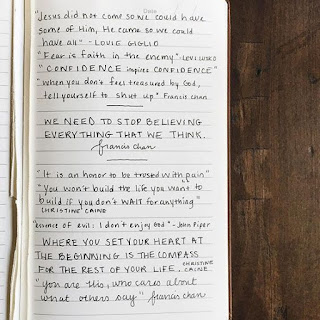 Date
"Jesus did not come so we could have
some of Him, He came so we could
have all" - LOUIE GIGLIO
"Fear is faith in the enemy" - LEVI LUSKO
"CONFIDENCE inspires CONFIDENCE"
"when you don't feel treasured by God,
tell yourself to shut up" Francis chan
WE NEED TO STOP BELIEVING
EVERYTHING THAT WE THINK.
francis chan
"It is an honor to be trusted with pain"
"You won't build the life you want to
build if you don't WAIT for anything"
CHRISTINE CAINE
"essence of evil: I don't enjoy God" - John Piper
WHERE YOU SET YOUR HEART AT
THE BEGINNING IS THE COMPASS
FOR THE REST OF YOUR LIFE. CHRISTINE CAINE
"you are His, who cares about
what others say" francis chan